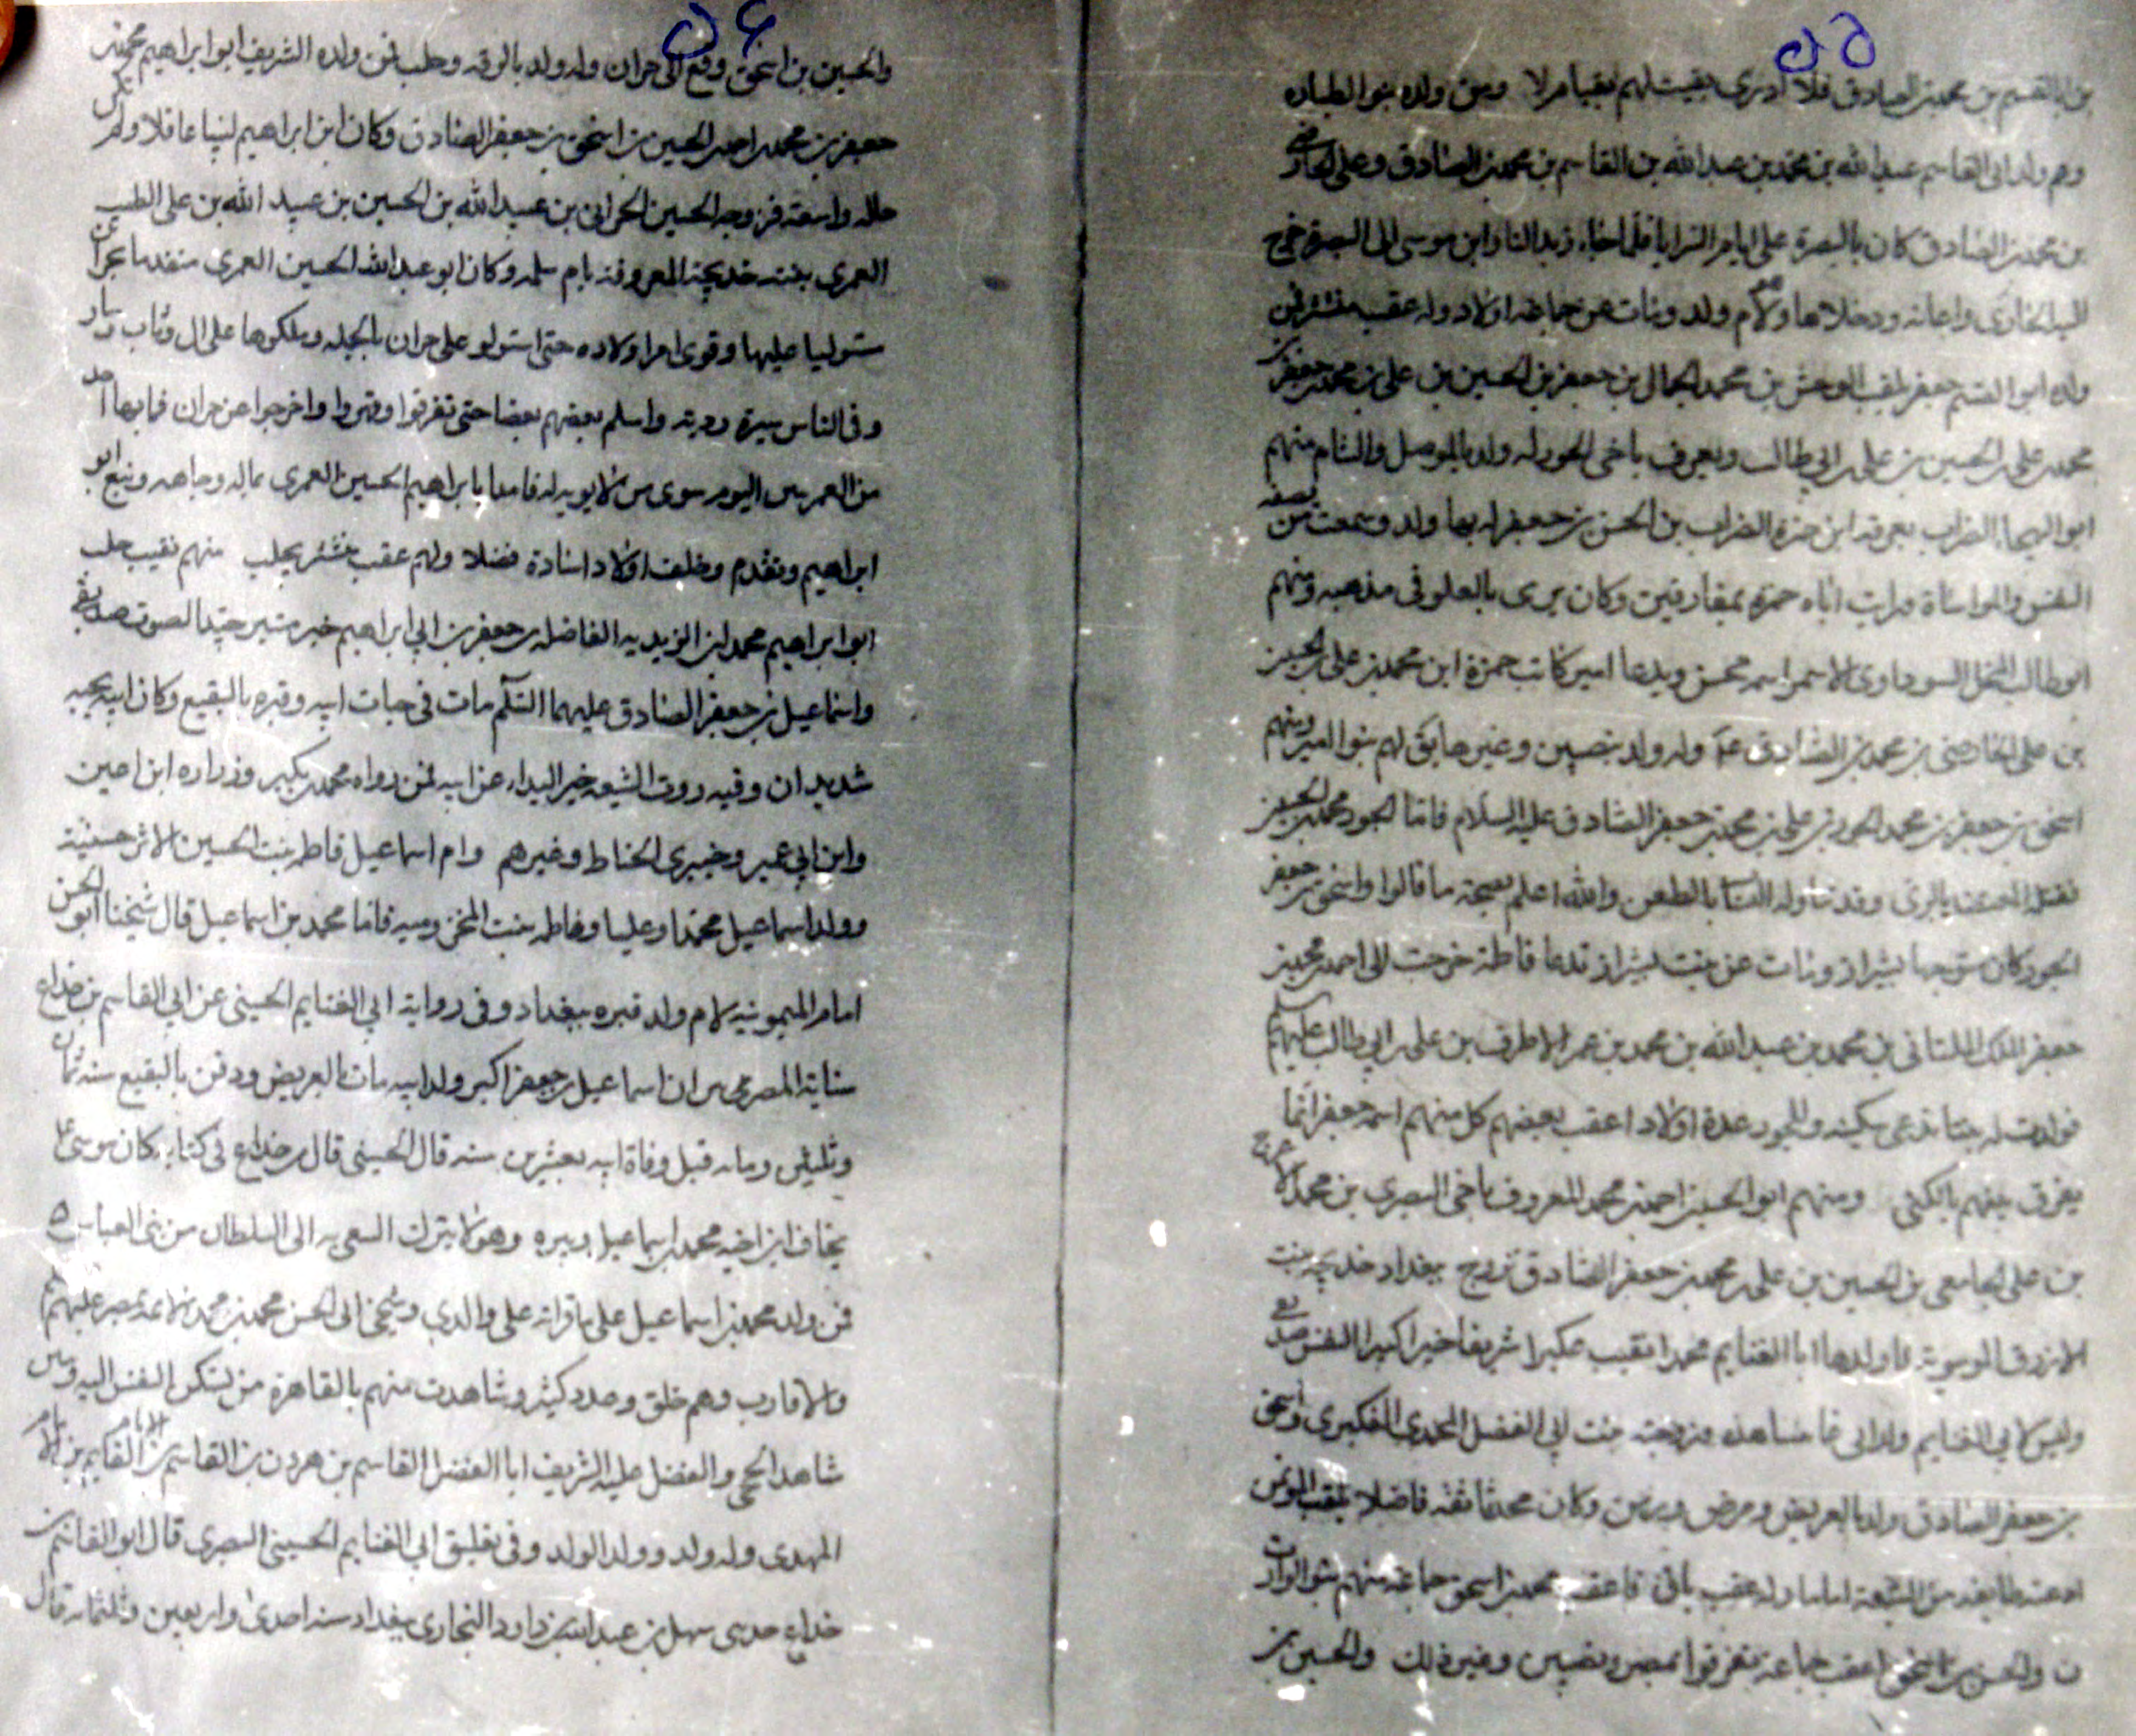 بن القسم بن محمد بن الصادق فلا أدرى بقيت لهم بقيا أم لا ومن ولده بنوا لطياره
وهم ولد ابى القاسم عبد الله بن محمد بن عبد الله بن القاسم بن محمد بن الصادق وعلى الخارصى
بن محمد بن الصادق كان بالبصرة على ايام السرايا فلما جاء زيد النار ابن موسى الى البصرة خرج
اليه الخارصى واعانه ولام ولد ومات عن جماعة اولاد وله عقب منتشر فمن
ولده ابو القسم جعفر لقب الوحش بن محمد الجمال بن جعفر بن الحسين بن على بن محمد بن جعفر بن
محمد بن على بن الحسين بن على بن ابي طالب ويعرف باخى الجور له ولد بالموصل والشام منهم
ابو الهيجا الضراب يعرف ابن حمزة الضراب بن الحسن بن جعفر له بها ولد وسمعت من يصفه
النفس والمواساة ورايت اباه حمزة بميفارقين وكان يرى بالعلو فى مذهبه ومنهم
ابو طالب السوداوى الاسمر اسمه محسن ويدعا اميركا بن حمزة ابن محمد بن على بن الحسين
بن على الخارصى بن محمد بن الصادق ع وله ولد بنصيبين وغيرها يق لهم بنوا ومنهم
اسحق بن جعفر بن محمد الجور بن على بن محمد بن جعفر الصادق عليه السلام فاما الجور محمد بن الحسين
فقتله المعتضد بالرى وقد تناوله النساب بالطعن والله اعلم بصحة ما قالوا واسحق بن جعفر
الجور كان متوجها بشيراز ومات عن بنت بشيراز تدعا فاطمة خرجت الى احمد بن محمد بن
جعفر الملك الملتانى بن محمد بن عبد الله بن محمد بن عمر الاطرف بن على بن ابي طالب عليهم السلم
فولدت له بنتا تدعى سكينه وللجور عدة اولاد اعقب بعضهم كل منهم اسمه جعفر انما
يفرق بينهم بالكنى ومنهم ابو الحسين احمد بن محمد المعروف باخى البصرى بن محمد الاعرج
بن على الجامعى بن الحسين بن على بن محمد بن جعفر الصادق تزوج ببغداد خديجه بنت
الازرق الموسوية فاولدها ابا الغنايم محمدا نقيب عكبرا شريفا خيرا كبير النفس صديقى
وليس لابي الغنايم ولد الى فا مشاهده من زوجته بنت ابي الفضل المحمدى العكبرى واسحق
بن جعفر الصادق ولد بالعريض ومرض وزمن وكان محدثا ثقه فاضلا لقب المؤتمن
ادعته طايفه من الشيعة اماما وله عقب باق فاعقب محمد بن اسحق جماعة منهم بنو الوارث
ن والحسن بن اسحق اعقب جماعة تفرقوا بمصر ونصيبين وغير ذلك والحسين بن
والحسين بن اسحق وقع الى حران وله ولد بالرقه وحلب فمن ولده الشريف ابو ابراهيم محمد بن
جعفر بن محمد بن احمد بن الحسين بن اسحق بن جعفر الصادق وكان ابن ابراهيم لبيبا عاقلا ولم يكن
حاله واسعة فزوجه الحسين الحرانى بن عبد الله بن الحسين بن عبيد الله بن على الطيب
العمرى بنته خديجة المعروفة بام سلمه وكان ابو عبد الله الحسين العمرى متقدما بحران
مستوليا عليها وقوى امر اولاده حتى استولو على حران بالجملة وملكوها على ال وثاب وسار
وفى الناس سيرة ردية واسلم بعضهم بعضا حتى تفرقوا وقهروا واخرجوا عن حران فما بها احد
من العمريين اليوم سوى من لا يوبه له فامدا با ابراهيم الحسين العمرى بماله وجاهه ونبغ ابو
ابراهيم وتقدم وخلف اولادا سادة فضلا ولهم عقب منتشر بحلب منهم نقيب حلب
ابو ابراهيم محمد ابن الزيديه الفاضله بن جعفر بن ابي ابراهيم خبره متميز جيد الصوت صديقى
واسماعيل بن جعفر الصادق عليهما السلم مات فى حيات ابيه وقبره بالبقيع وكان ابيه يحبه
شديدا ن وفيه روت الشيعه خبر البداء عن ابيه فمن رواه محمد بن بكير وزراره ابن اعين
وابن ابي عمير وخيبرى الحناط وغيرهم وام اسماعيل فاطمه بنت الحسين الاثرم حسنية
وولد اسماعيل محمدا وعليا وفاطمه بنت المخزوميه فاما محمد بن اسماعيل قال شيخنا ابو الحسن
امام الميمونيه لام ولد قبره ببغداد وفى رواية ابي الغنايم الحسينى عن ابي القاسم بن خداع
نسابة المصريين ان اسماعيل بن جعفر اكبر ولد ابيه مات بالعريض ودفن بالبقيع سنه ثمان
وثلثين ومايه قبل وفاة ابيه بعشرين سنه قال الحسينى قال بن خداع فى كتابه كان موسى ع
يخاف ابن اخيه محمد بن اسماعيل ويبره وهو لا يترك السعى به الى السلطان من بنى العباس ه
فمن ولد محمد بن اسماعيل على ما قراته على والدى وشيخى ابى الحسن محمد بن محمد الائمة بمصر عليهم السلم
والاقارب وهم خلق وعدد كثير وشاهدت منهم بالقاهرة من لتسكن النفس اليه ومن
شاهد الحجى والفضل عليه الشريف ابا الفضل القاسم بن هرون بن القاسم بن الامام القايم بن الامام
المهدى وله ولد وولد الولد وفى تعليق ابي الغنايم الحسينى البصرى قال ابو القاسم بن
خداع حدثنى سهل بن عبد الله بن داود البخارى ببغداد سنه احدى واربعين وثلثمايه قال